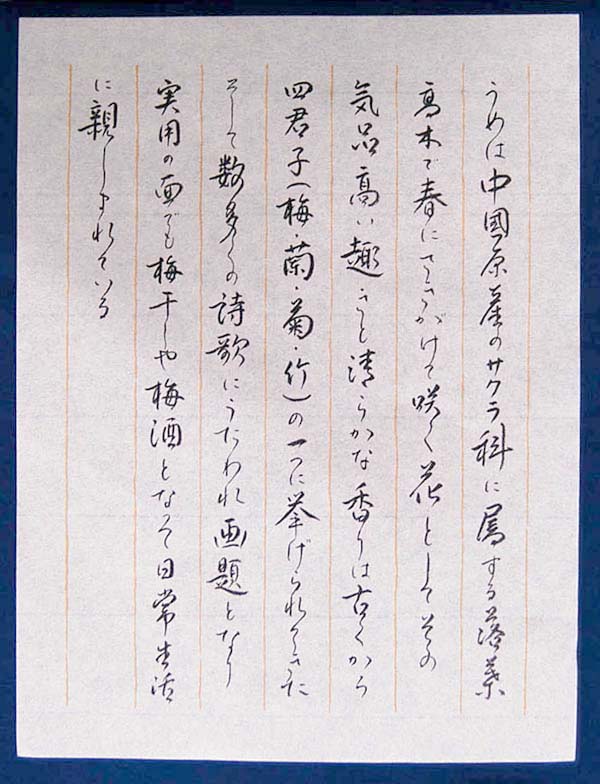 うめは中國原産のサクラ科に属する落葉
高木で春にさきがけて咲く花としてその
気品高い趣きと清らかな香りは古くから
四君子(梅・蘭・菊・竹)の一つに挙げられてきた
そして数多くの詩歌にうたわれ画題となり
実用の面でも梅干しや梅酒となって日常生活
に親しまれている